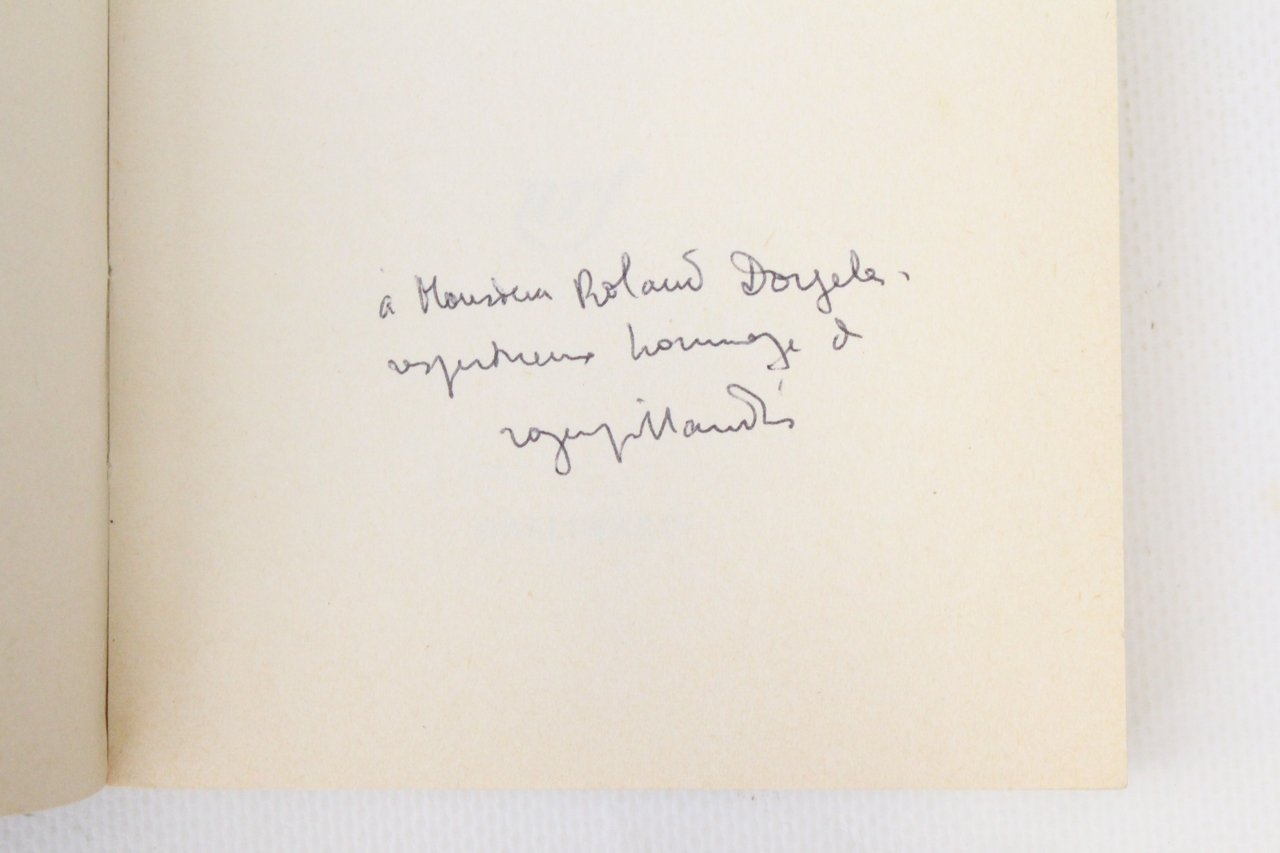 à Monsieur Roland Dorgelès,
respectueux hommage de
roger pillaudin
nrf